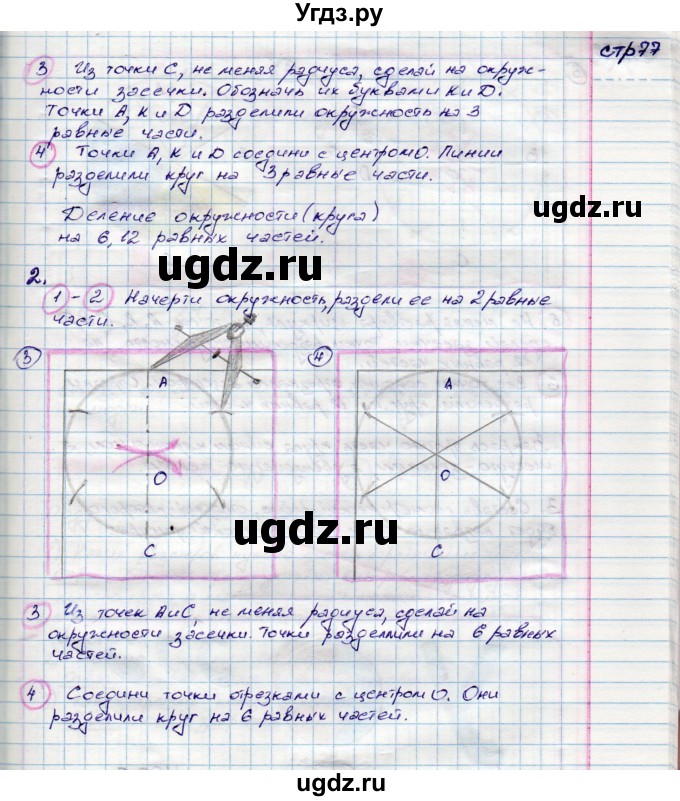 Угдз.ру
стр77
3 Из точки С, не меняя радиуса, сделай на окруж-
ности засечки. Обозначь их буквами К и D.
Точки А, К и D разделили окружность на 3
равные части.
4 Точки А, К и D соедини с центром О. Линии
разделили круг на 3 равные части.
ugdz.ru
Деление окружности (круга)
на 6, 12 равных частей.
ugdz.ru
2.
1 - 2 Начерти окружность, раздели ее на 2 равные
части.
3
4
A
A
O
O
C
C
ugdz.ru
3 Из точек А и С, не меняя радиуса, сделай на
окружности засечки. Точки разделили на 6 равных
частей.
ugdz.ru
4 Соедини точки отрезками с центром О. Они
разделили круг на 6 равных частей.
ugdz.ru